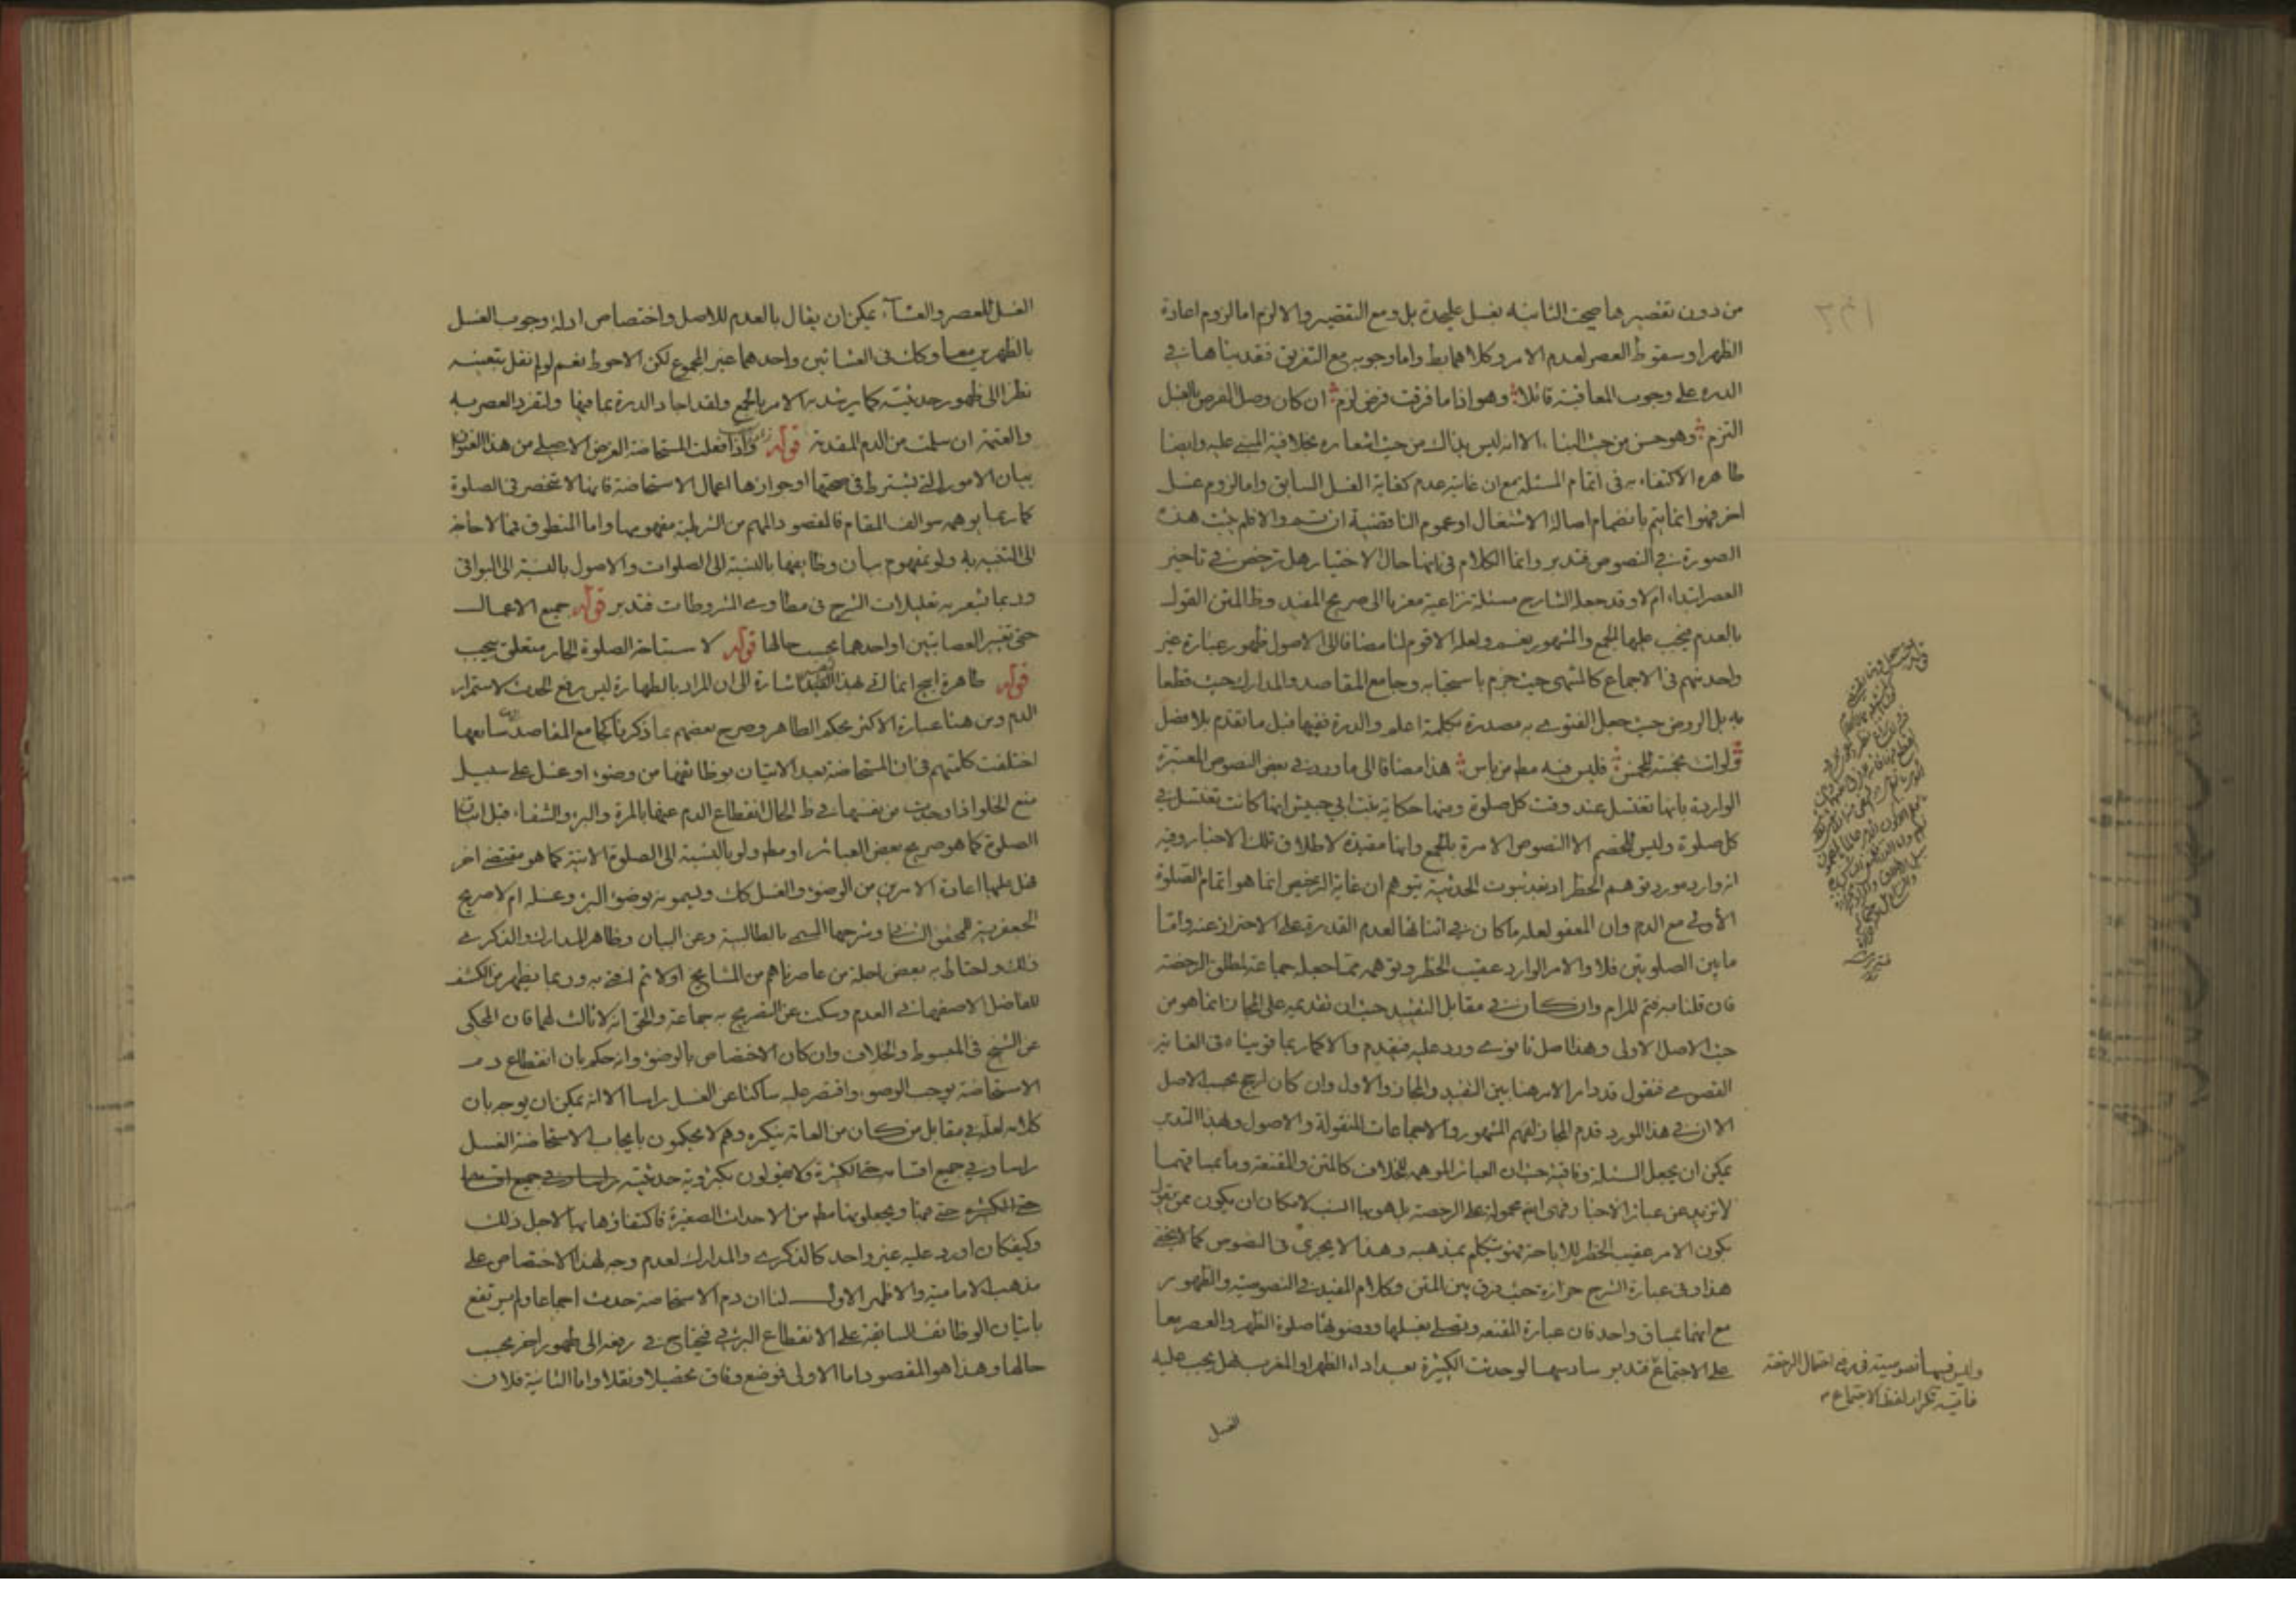 من دون تقصيرها صحت الثانيه بغسل عليحدة بل ومع التقصير والا لزم اما لزوم اعادة
الظهر او سقوط العصر لعدم الامر وكلاهما بط واما وجوبه مع التفريق فقد بناها في
الدره على وجوب المعاقبة قائلا وهو اذا ما فرقت فرض لزم ان كان وصل الفرض بالغسل
التزم وهو حسن من حيث البناء الا انه ليس بذاك من حيث اشعاره بخلافية المبنى عليه وايضا
ظاهره الاكتفاء به في اتمام المسئلة مع ان غايته عدم كفاية الغسل السابق واما لزوم غسل
اخر فهو انما يتم بانضمام اصالة الاشتغال او عموم الناقضية ان تم والا فلم يثبت هذه
الصورة في النصوص فتدبر وانما الكلام في انها حال الاختيار هل ترخص في تاخير
العصر ابتداء ام لا وقد جعله الشارح مسئلة نزاعية معزيا الى صريح المفيد وظ المتن القول
بالعدم فيجب عليها الجمع والمشهور نعم ولعله الاقوم لنا مضافا الى الاصول ظهور عبارة غير
واحد منهم في الاجماع كالمنتهى حيث جزم باستحبابه وجامع المقاصد والمدارك حيث قطعا
به بل الروض حيث جعل الفتوى به مصدرة بكلمة اعلم والدرة ففيها قبل ما تقدم بلا فصل
ولو اتت بخمسة للخمس فليس فيه مط من باس هذا مضافا الى ما ورد في بعض النصوص المعتبرة
الواردة بانها تغتسل عند وقت كل صلوة ومنها حكاية بنت ابي حبيش انها كانت تغتسل في
كل صلوة وليس للخصم الا النصوص الامرة بالجمع وانها مقيدة لاطلاق تلك الاخبار وفيه
انه وارد مورد توهم الحظر اذ بعد ثبوت الحدثية يتوهم ان غاية الترخيص انما هو اتمام الصلوة
الأولى مع الدم وان المعفو لعله ما كان في اثنائها لعدم القدرة على الاحتراز عنه واما
ما بين الصلوتين فلا والامر الوارد عقيب الحظر وتوهمه مما جعله جماعة لمطلق الرخصة
فان قلنا به فتم المرام وان كان في مقابل التقييد حيث ان تقديمه على المجاز انما هو من
حيث الاصل الاولى وهذا اصل ثانوى ورد عليه فيقدم والا كما ربما قويناه في الغاية
القصوى فنقول قد دار الامر هنا بين التقييد والمجاز والاول وان كان ارجح بحسب الاصل
الا ان في هذا المورد قدم المجاز لفهم المشهور والاجماعات المنقولة والاصول ولهذا التدبر
يمكن ان يجعل المسئلة وفاقية حيث ان العبائر الموهمة للخلاف كالمتن والمقنعة وما بمساقهما
لا تزيد عن عبائر الاخبار فهى ايضا محمولة على الرخصة بل هو بها انسب لامكان ان يكون ممن يقول
بكون الامر عقيب الحظر للاباحة فهو يتكلم بمذهبه وهذا لا يجرى في النصوص كما لا يخفى
هذا وفى عبارة الشرح حزازة حيث فرق بين المتن وكلام المفيد في النصوصية والظهور
مع انهما بمساق واحد فان عبارة المقنعه وتصلى بغسلها ووضوئها صلوة الظهر والعصر معا
على الاجتماع فتدبر سادسها لو حدثت الكثيرة بعد اداء الظهر او المغرب فهل يجب عليه
وليس فيها نصوصية في رفع احتمال الرخصة
غايته تكرار لفظ الاجتماع
الغسل
الغسل للعصر والعشاء يمكن ان يقال بالعدم للاصل واختصاص ادلة وجوب الغسل
بالظهرين معا وكك في العشائين واحدهما غير المجموع لكن الاحوط نعم لو لم نقل بتعينه
نظرا الى ظهور حدثيته كما يرشد به الامر بالجمع ولقد اجاد الدرة بما فيها ولتفرد العصر به
والعتمة ان سلمت من الدم المقدمة قوله واذا فعلت المستحاضة الغرض الاصلى من هذا العنوان
بيان الامور التى يشترط في صحتها او جوازها اعمال الاستحاضة فانها لا تنحصر في الصلوة
كما ربما يوهمه سوالف المقام فالمقصود المهم من الشرطية مفهومها واما المنطوق فما لا حاجة
الى التنبيه به ولو بمفهوم بيان وظايفها بالنسبة الى الصلوات والاصول بالنسبة الى البواقى
وربما يشعر به تعليلات الشرح في مطاوى المشروطات فتدبر قوله جميع الاعمال
حتى تغيير العصابتين او احدهما بحسب حالها قوله لاستباحة الصلوة الجار متعلق بيجب
قوله طاهرة ايج انما اتى بهذا القيد اشارة الى ان المراد بالطهارة ليس رفع الحدث لاستمرار
الدم ومن هنا عبارة الاكثر بحكم الطاهر وصرح بعضهم بما ذكرنا كجامع المقاصد سابعها
اختلفت كلمتهم في ان المستحاضة بعد الاتيان بوظائفها من وضوء او غسل على سبيل
منع الخلو اذا وجدت من نفسها في ظ الحال انقطاع الدم عنها بالمرة والبرء والشفاء قبل اتيان
الصلوة كما هو صريح بعض العبائر او مط ولو بالنسبة الى الصلوة الاتية كما هو مقتضى اخر
فهل عليها اعادة الامرين من الوضوء والغسل كك ويسمونه بوضوء البرء وغسله ام لا صريح
الجعفرية للمحقق الثانى وشرحها المسمى بالطالبية وعن البيان وظاهر المدارك والذكرى
ذلك واحتاط به بعض اجلة من عاصرناهم من المشايخ اولا ثم افتى به وربما يظهر من الكشف
للفاضل الاصفهانى العدم وسكت عن التصريح به جماعة والحق انه لا ثالث لهما فان المحكى
عن الشيخ في المبسوط والخلاف وان كان الاختصاص بالوضوء وانه حكم بان انقطاع دم
الاستحاضة يوجب الوضوء واقتصر عليه ساكتا عن الغسل راسا الا انه يمكن ان يوجه بان
كلامه لعله في مقابل من كان من العامة ينكره وهم لا يحكمون بايجاب الاستحاضة الغسل
راسا وفي جميع اقسامه حتى الكثيرة ولا يقولون بكبروية حدثيته راسا وفي جميع اقسامها
حتى الكثيرة حتى هنا ويجعلونها مط من الاحداث الصغيرة فاكتفاؤها بها لاجل ذلك
وكيفكان اورد عليه غير واحد كالذكرى والمدارك لعدم وجه لهذا الاختصاص على
مذهب الامامية والاظهر الاول لنا ان دم الاستحاضة حدث اجماعا ولم يرتفع
باتيان الوظائف السابقة على الانقطاع البرئى فيحتاج في رفعه الى طهور اخر بحسب
حالها وهذا هو المقصود اما الاولى فوضع وفاق تحصيلا ونقلا واما الثانية فلان